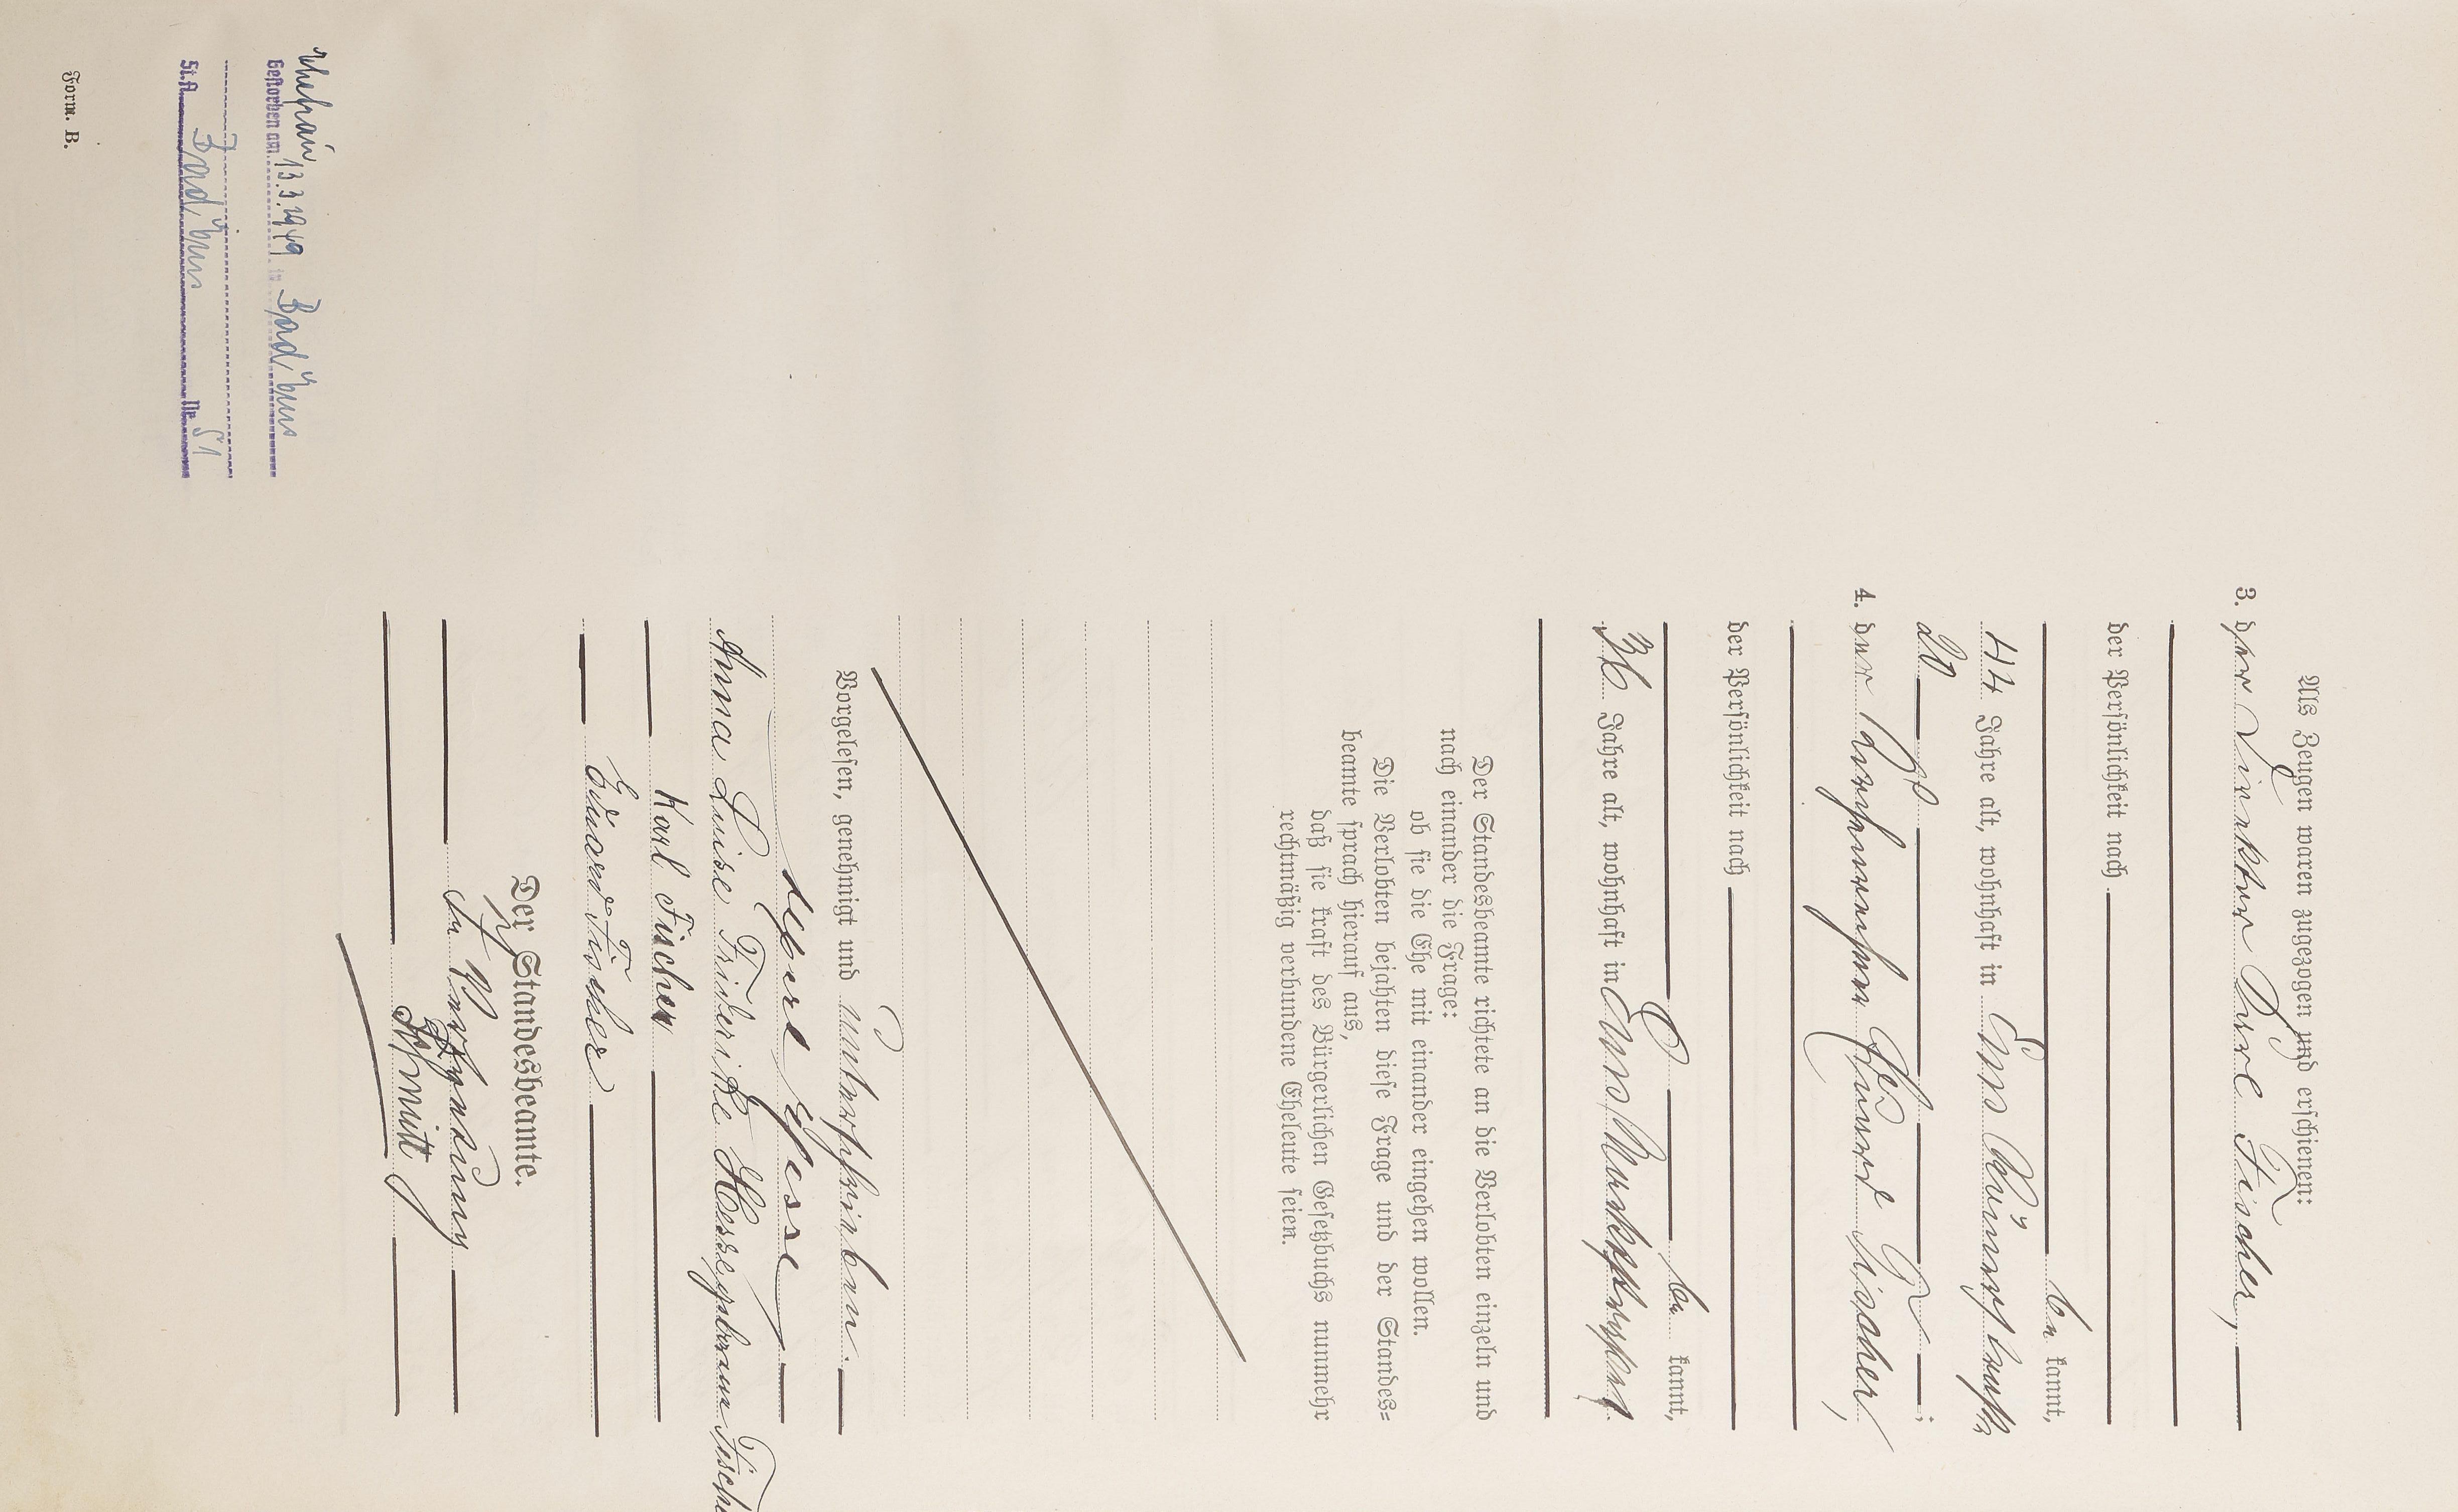 Als Zeugen waren zugezogen und erschienen:
3. der Direktor Karl Fischer,
der Persönlichkeit nach
be kannt,
44 Jahre alt, wohnhaft in
20
4. der Eduard Fischer,
der Persönlichkeit nach
be kannt,
36 Jahre alt, wohnhaft in
Der Standesbeamte richtete an die Verlobten einzeln und
nach einander die Frage:
ob sie die Ehe mit einander eingehen wollen.
Die Verlobten bejahten diese Frage und der Standes=
beamte sprach hierauf aus,
daß sie kraft des Bürgerlichen Gesetzbuchs nunmehr
rechtmäßig verbundene Eheleute seien.
Vorgelesen, genehmigt und unterschrieben.
Hesse
Anna Luise Friderike Hesse, geborene Fischer
Karl Fischer
Eduard Fischer
Der Standesbeamte.
In Vertretung
Schmitt
Ehefrau
Gestorben am 13.3.1949 in Bad Ems
St.A. Bad Ems Nr. 51
Form. B.